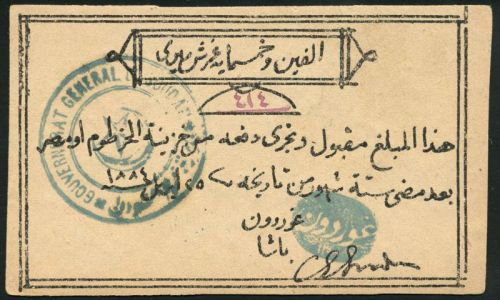 الفين وخمسماية غرش ميرى
٤٢٤
هذا المبلغ مقبول وتجرى دفعه من خزينة الخرطوم او مصر
بعد مضى ستة شهور من تاريخه ٢٥ ابريل ١٨٨٤
غوردون
باشا
غوردون
GOUVERNORAT GENERAL DU SOUDAN